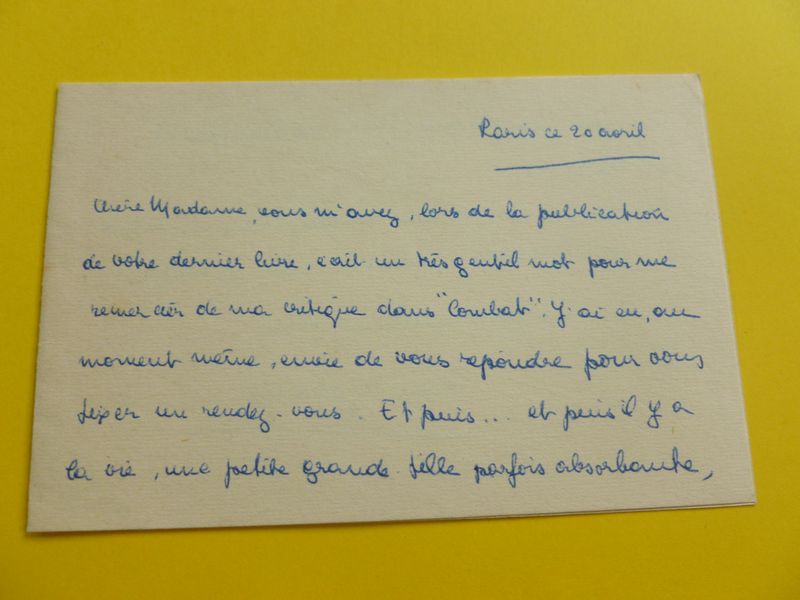 Paris ce 20 avril
Chère Madame, vous m'avez, lors de la publication
de votre dernier livre, écrit un très gentil mot pour me
remercier de ma critique dans "Combat". J'ai eu, au
moment même, envie de vous répondre pour vous
fixer un rendez-vous. Et puis... et puis il y a
la vie, une petite grande fille parfois absorbante,